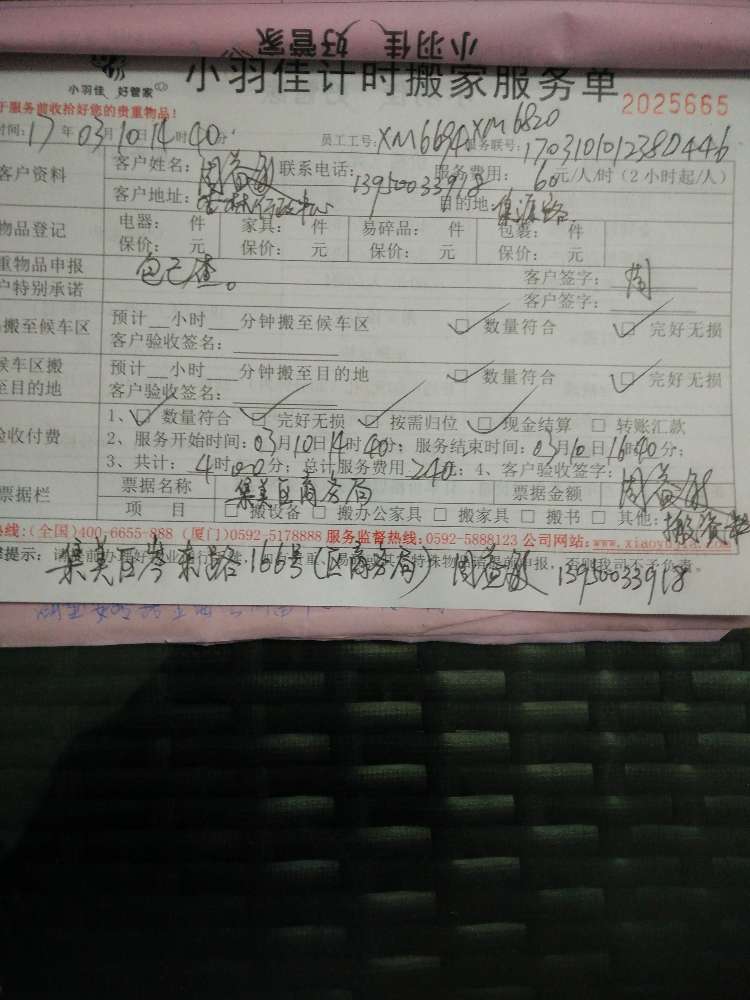 小羽佳 好管家
小羽佳 好管家
小羽佳计时搬家服务单
2025665
于服务前收拾好您的贵重物品!
时间: 17年03月10日14时40分
员工工号: XM6694 XM6820
服务联号: 1703101012380446
客户资料
客户姓名: 联系电话: 13950033918 服务费用: 60元/人/时(2小时起/人)
客户地址: 目的地:
物品登记
电器: 件 家具: 件 易碎品: 件 包裹: 件
保价: 元 保价: 元 保价: 元 保价: 元
重物品申报 包已查。 客户签字: 周
户特别承诺 客户签字:
搬至候车区
预计__小时___分钟搬至候车区 数量符合 完好无损
客户验收签名:
候车区搬
至目的地
预计__小时___分钟搬至目的地 数量符合 完好无损
客户验收签名:
验收付费
1、数量符合 完好无损 按需归位 现金结算 转账汇款
2、服务开始时间: 03月10日14时40分; 服务结束时间: 03月10日16时40分;
3、共计: 4时00分; 总计服务费用 240元; 4、客户验收签字:
票据栏
票据名称 集美区商务局 票据金额
项 目 搬设备 搬办公家具 搬家具 搬书 其他: 搬资料
热线:(全国)400-6655-888 (厦门)0592-5178888 服务监督热线:0592-5888123 公司网站:www.xiaoyujia.com
集美区岑东路166号(区商务局) 13950033918